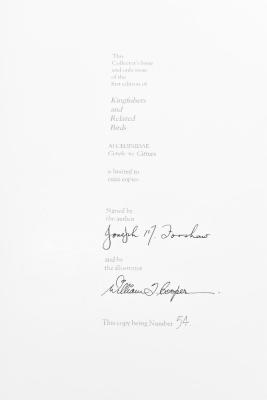 This
Collector's Issue
and only issue
of the
first edition of
Kingfishers
and
Related
Birds
ALCEDINIDAE
to
is limited to
copies
Signed by
the author
Joseph M. Forshaw
and by
the illustrator
William T. Cooper.
This copy being Number 54